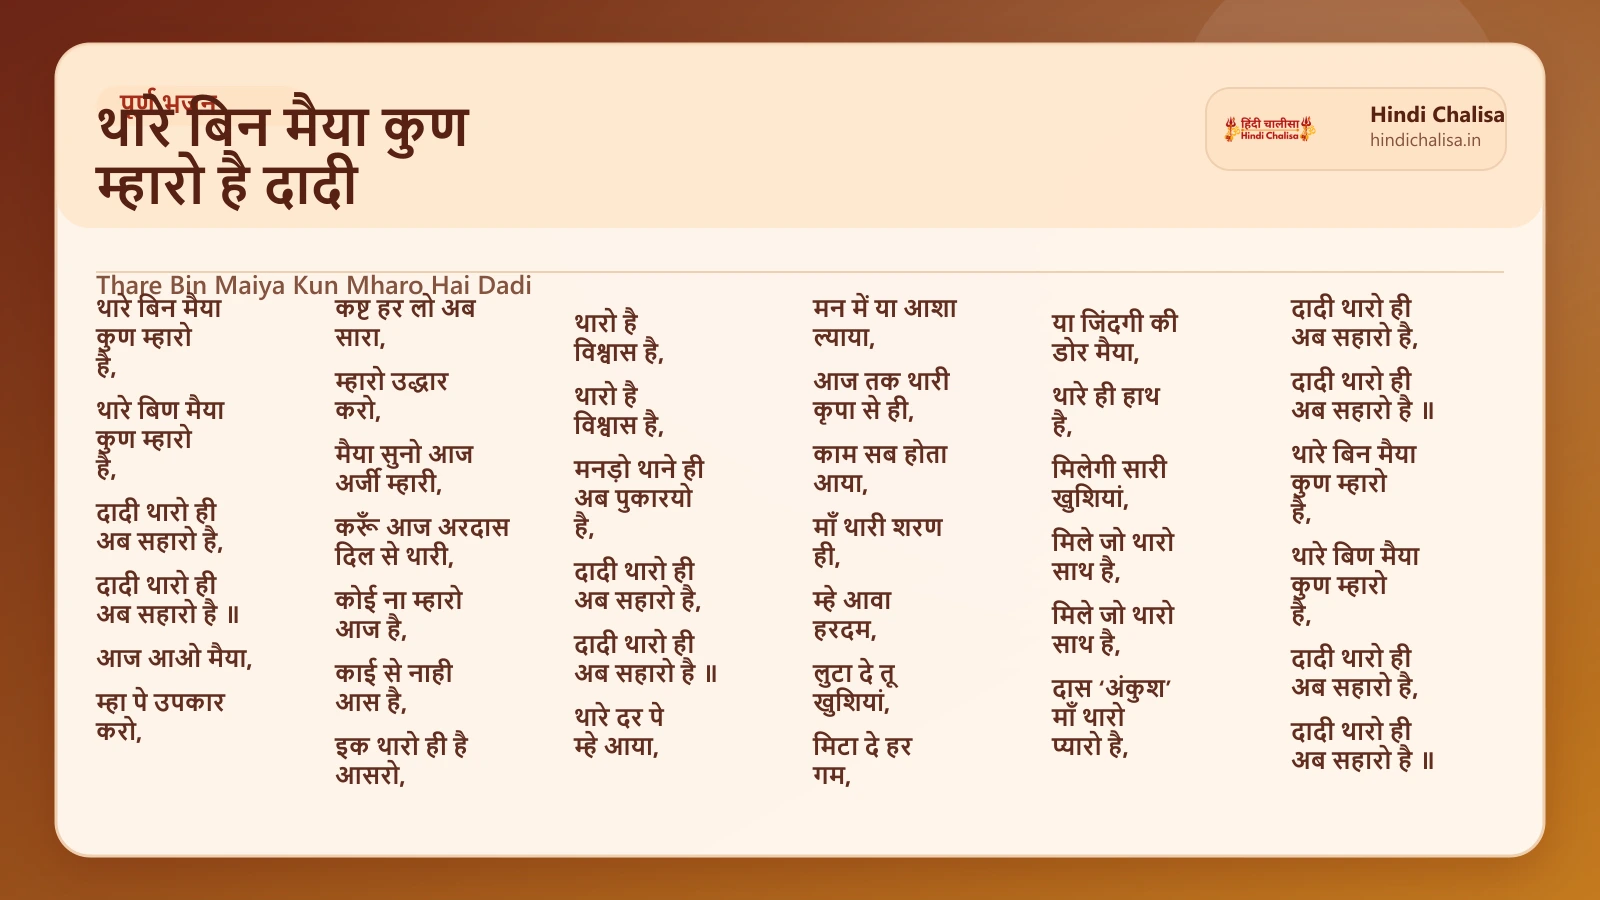 पूर्ण भजन
थारे बिन मैया कुण
म्हारो है दादी
हिंदी चालीसा
Hindi Chalisa
Hindi Chalisa
hindichalisa.in
Thare Bin Maiya Kun Mharo Hai Dadi
थारे बिन मैया
कुण म्हारो
है,
थारे बिण मैया
कुण म्हारो
है,
दादी थारो ही
अब सहारो है,
दादी थारो ही
अब सहारो है ॥
आज आओ मैया,
म्हा पे उपकार
करो,
कष्ट हर लो अब
सारा,
म्हारो उद्धार
करो,
मैया सुनो आज
अर्जी म्हारी,
करूँ आज अरदास
दिल से थारी,
कोई ना म्हारो
आज है,
काई से नाही
आस है,
इक थारो ही है
आसरो,
थारो है
विश्वास है,
थारो है
विश्वास है,
मनड़ो थाने ही
अब पुकारयो
है,
दादी थारो ही
अब सहारो है,
दादी थारो ही
अब सहारो है ॥
थारे दर पे
म्हे आया,
मन में या आशा
ल्याया,
आज तक थारी
कृपा से ही,
काम सब होता
आया,
माँ थारी शरण
ही,
म्हे आवा
हरदम,
लुटा दे तू
खुशियां,
मिटा दे हर
गम,
या जिंदगी की
डोर मैया,
थारे ही हाथ
है,
मिलेगी सारी
खुशियां,
मिले जो थारो
साथ है,
मिले जो थारो
साथ है,
दास ‘अंकुश’
माँ थारो
प्यारो है,
दादी थारो ही
अब सहारो है,
दादी थारो ही
अब सहारो है ॥
थारे बिन मैया
कुण म्हारो
है,
थारे बिण मैया
कुण म्हारो
है,
दादी थारो ही
अब सहारो है,
दादी थारो ही
अब सहारो है ॥